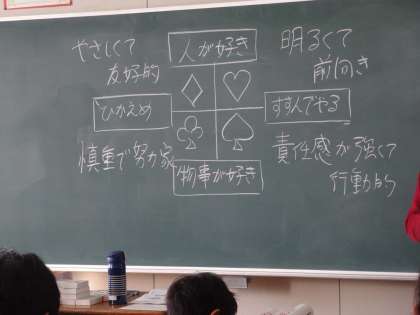 やさしくて
友好的
人が好き
明るくて
前向き
ひかえめ
すすんでやる
慎重で努力家
物事が好き
責任感が強くて
行動的